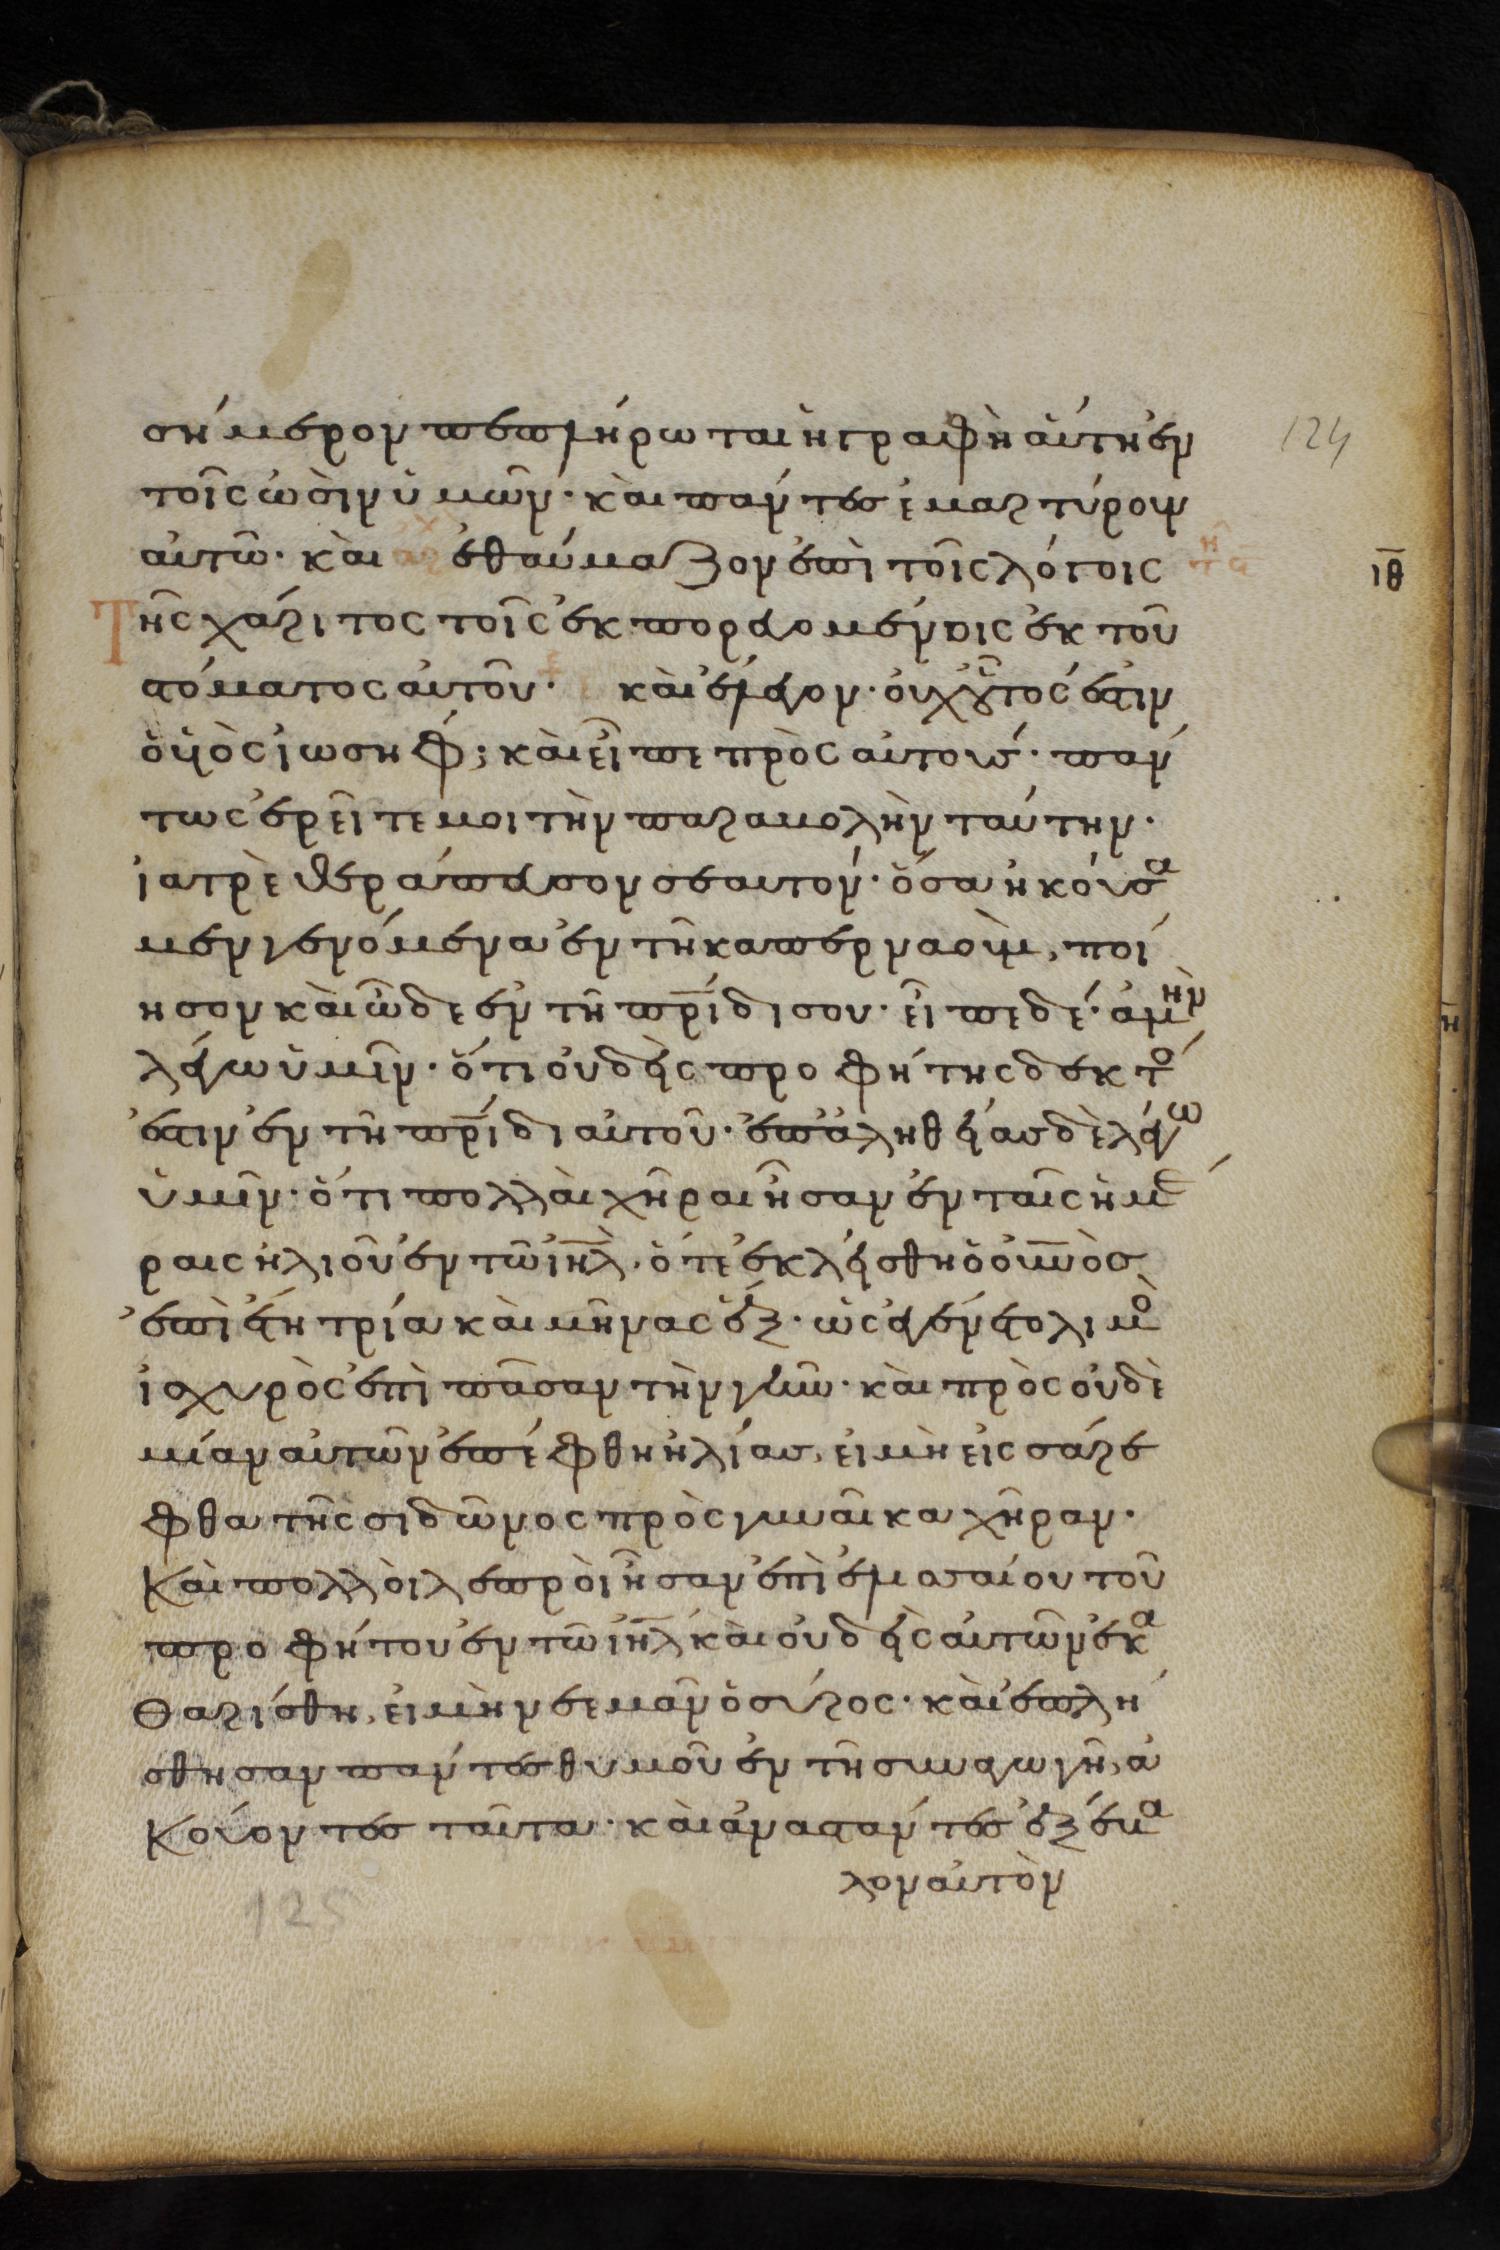 σήμερον πεπλήρωται ἡ γραφὴ ἁύτη ἐν
τοῖς ὠσὶν ὑμῶν· κὰι πάντες ἐμαρτύρουν
αὐτῶ· κὰι ἐθαύμαζον ἐπὶ τοῖς λόγοις
Τῆς χάριτος τοῖς ἐκπορευομένοις ἐκ τοῦ
στόματος αὐτοῦ· κὰι ἔλεγον· ὀυχ οὗτός ἐστιν
ὁ υἱὸς ἰωσήφ; κὰι εἶπε πρὸς αὐτούς· πάν
τως ἐρεῖτε μοι τὴν παραβολὴν ταύτην·
ἰατρὲ θεράπευσον σεαυτόν· ὅσα ἠκούσα
μεν γενόμενα ἐν τῆ καπερναοὺμ, ποί
ησον κὰι ὧδε ἐν τῆ πρίδι σου· εἶπε δέ· ἀμὴν
λέγω ὑμῖν· ὅτι ὀυδεὶς προφήτης δεκτό
ἐστιν ἐν τῆ πρίδι αὐτοῦ· ἐπ ἀληθείας δὲ λέγω
ὑμῖν· ὅτι πολλὰι χῆραι ἦσαν ἐν ταῖς ἡμέ
ραις ἠλιοῦ ἐν τῶ ἰηλ, ὅτε ἐκλείσθη ὁ οὐνὸς
ἐπὶ ἔτη τρία κὰι μῆνας ἕξ· ὡς ἐγένετο λιμὸ
ἰσχυρὸς ἐπὶ πᾶσαν τὴν γῆν· κὰι πρὸς ὀυδε
μίαν αὐτῶν ἐπέμφθη ἠλίας, ἐι μὴ εἰς σάρε
φθα τῆς σιδῶνος πρὸς γυναῖκα χῆραν·
Κὰι πολλὸι λεπρὸι ἦσαν ἐπὶ ἐλισσαίου τοῦ
προφήτου ἐν τῶ ἰηλ κὰι ὀυδεὶς αὐτῶν ἐκα
θαρίσθη, ἐι μὴ νεεμὰν ὁ σύρος· κὰι ἐπλή
σθησαν πάντες θυμοῦ ἐν τῆ συναγωγῆ, ἀ
Κούοντες ταῦτα· κὰι ἀναστάντες ἐξέβα
λον αὐτὸν
124
ιθ
125